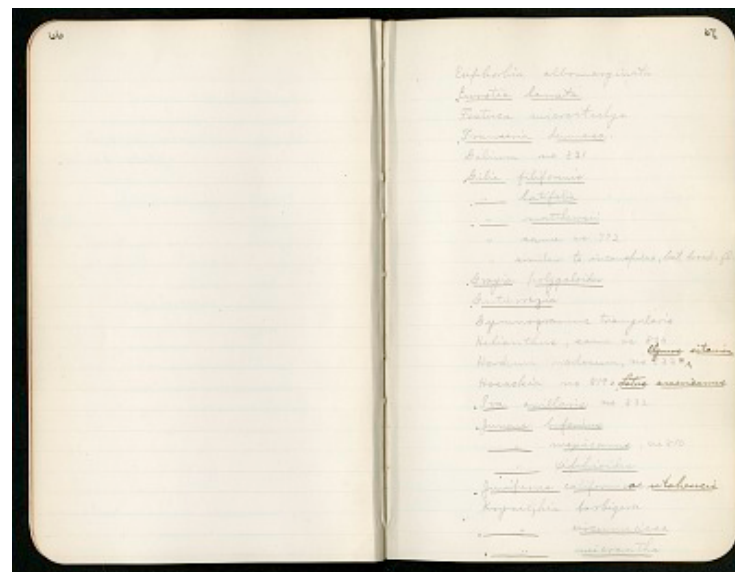 66
67
Euphorbia albomarginata
Eurotia lanata
Festuca microstachys
Franseria dumosa.
Galium no 821
Gilia filifolia
" latifolia
" matthewsii
" same as 772
" similar to inconspicua, but broad fl
Grayia polygaloides
Gutierrezia
Gymnogramme triangularis
Helianthus, same as
Hordeum nodosum, no Elymus sitanion
Hosackia no Lotus americanus
Iva axillaris no 832
Juncus bufonius
" mexicanus, no 810
" xiphioides
Juniperus californica utahensis
Krynitzkia barbigera
"
" micrantha